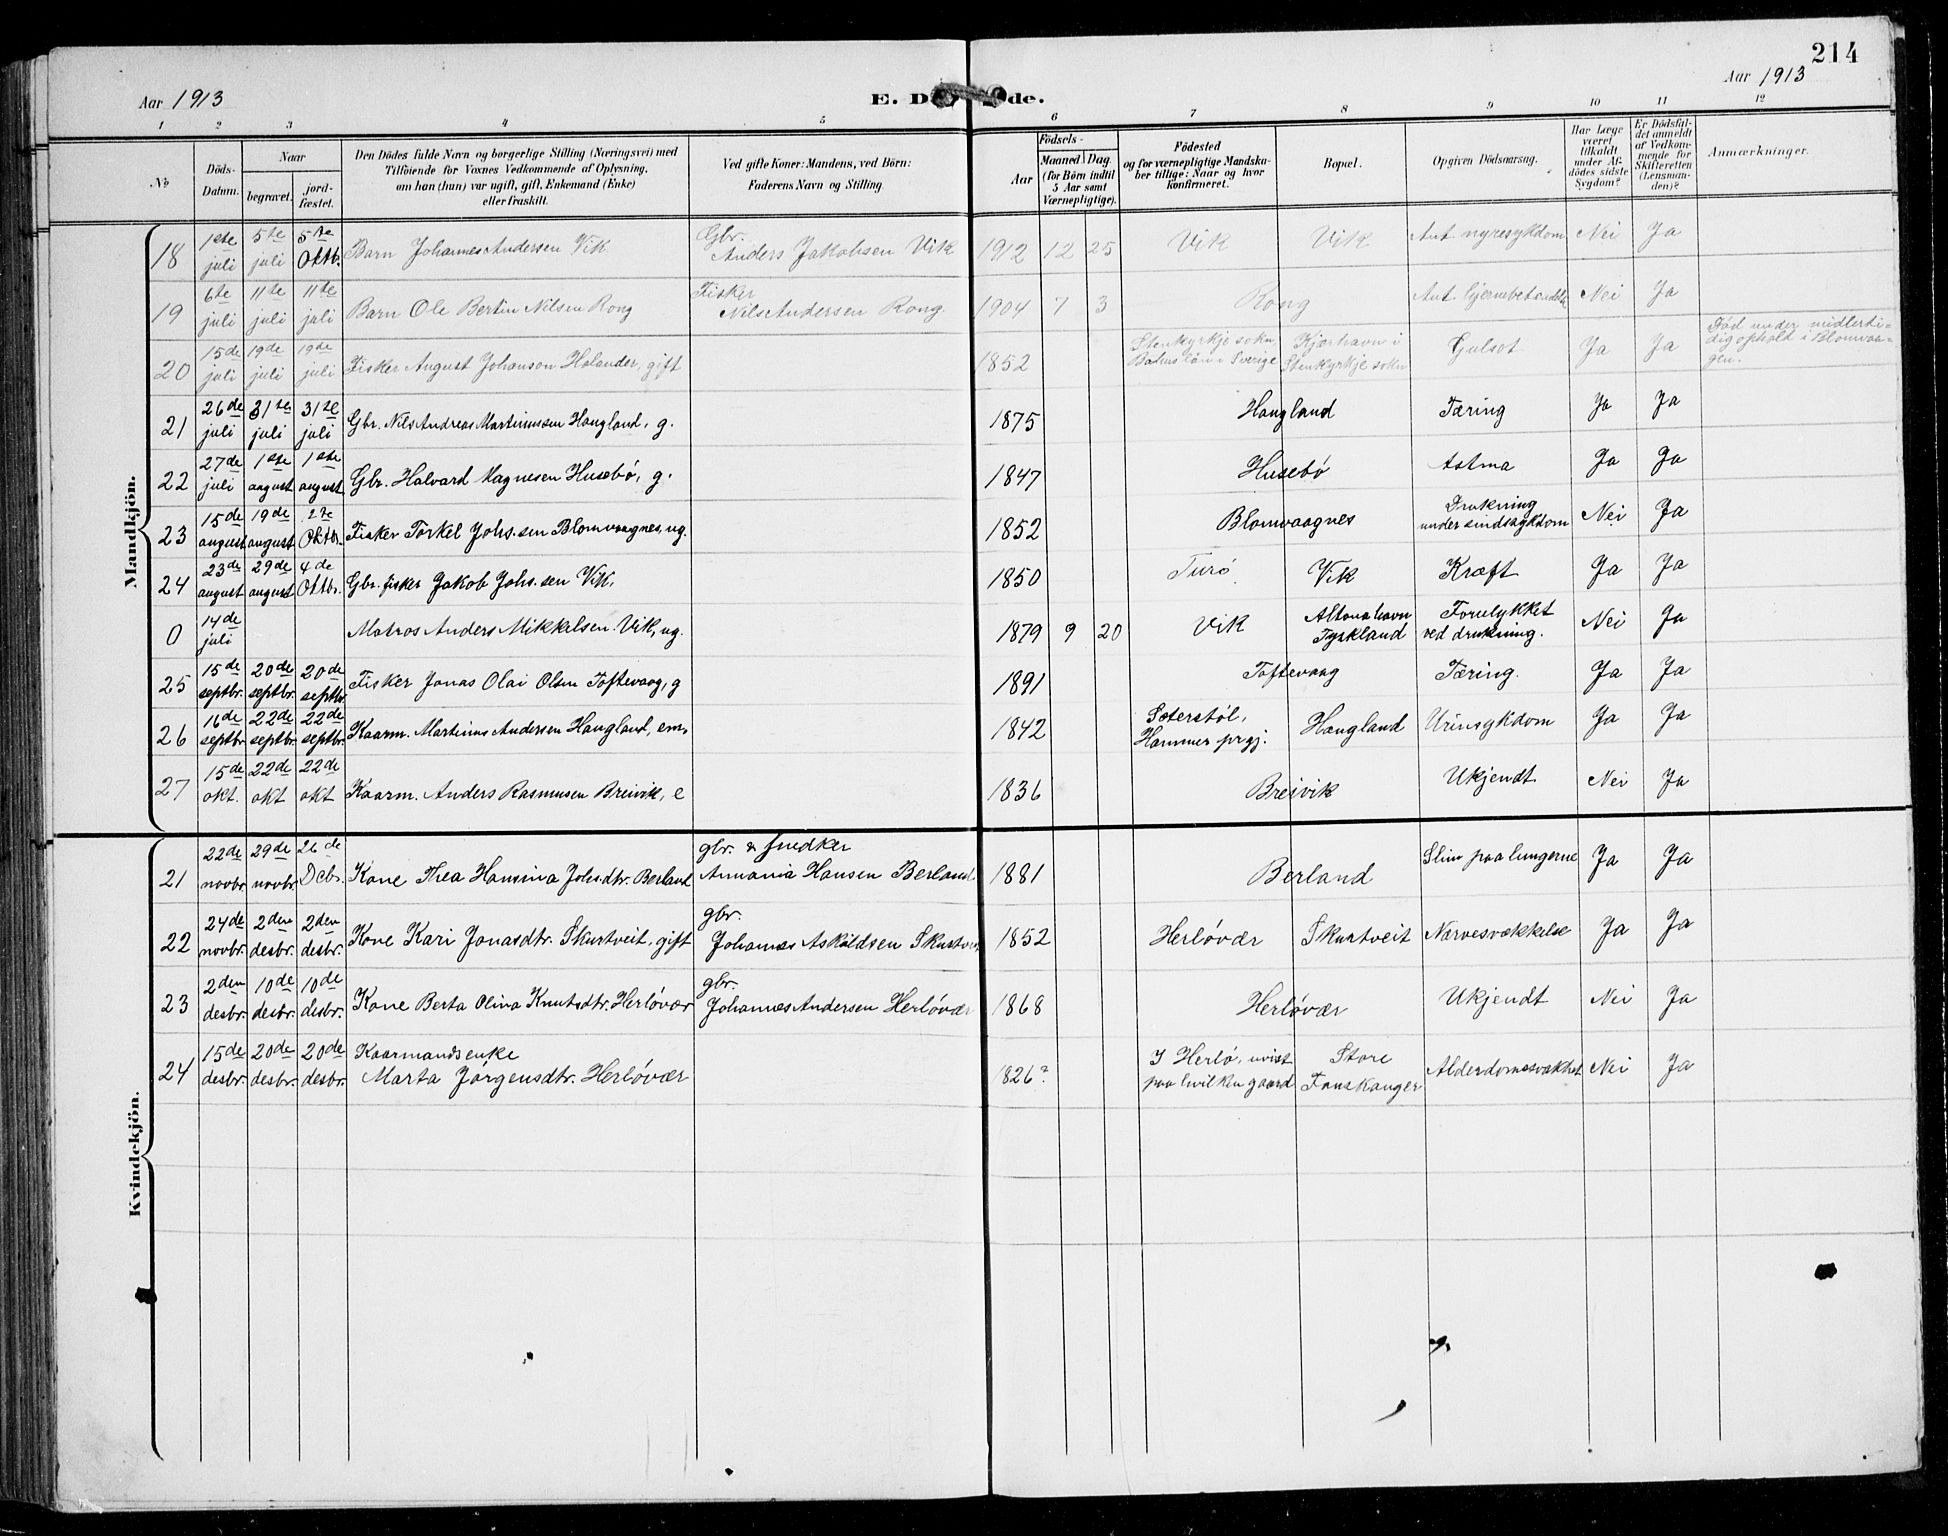 214
Aar 1913
E. Dø de.
Aar 1913
1 2 3 4 5 6 7 8 9 10 11 12
No
Döds-Datum.
Naar
begravet. jord-fæstet.
Den Dödes fulde Navn og borgerlige Stilling (Næringsvei) med
Tilföiende for Voxnes Vedkommende af Oplysning,
om han (hun) var ugift, gift, Enkemand (Enke)
eller fraskilt.
Ved gifte Koner: Mandens, ved Börn:
Faderens Navn og Stilling.
Födsels-
Aar
Maaned Dag
(for Börn indtil
5 Aar samt
Værnepligtige).
Födested
og for værnepligtige Mandska-
ber tillige: Naar og hvor
konfirmeret.
Bopæl.
Opgiven Dödsaarsag.
Har Læge
været
tilkaldt
under Af-
dödes sidste
Sygdom?
Er Dödsfal-
det anmeldt
af Vedkom-
mende for
Skifteretten
(Lensman-
den)?
Anmærkninger.
Mandkjön.
18 1ste juli 5te juli 5te Oktb. Barn Johannes Andersen Vik Gbr. Anders Jakobsen Vik 1912 12 25 Vik Vik Ant. nyresykdom Nei Ja
19 6te juli 11te juli 11te juli Barn Ole Bertin Nilsen Rong Fisker Nils Andersen Rong. 1904 7 3 Rong Ant. hjernebetændelse Nei Ja
20 15de juli 19de juli 19de juli Fisker August Johanson Holander, gift 1852 Stenkyrkje sokn Bahus län i Sverige Kjærhavn i Stenkyrkje sokn Gulsot Ja Ja Död under midlerti-
dig ophold i Blomvaa-
gen.
21 26de juli 31te juli 31te juli Gbr. Nils Andreas Martinussen Haugland, g. 1875 Haugland Tæring Ja Ja
22 27de juli 1ste august 1ste august Gbr. Halvard Magnesen Husebö, g. 1847 Husebö Astma Ja Ja
23 15de august 19de august 2te Oktbr. Fisker Torkel Johs.sen Blomvaagnes, ug. 1852 Blomvaagnes Drukning under sindssykdom Nei Ja
24 23de august 29de august 4de Oktbr. Gbr. fisker Jakob Johs.sen Vik, 1850 Turö Vik Kræft Ja Ja
0 14de juli Matros Anders Mikkelsen Vik, ug. 1879 9 20 Vik Altonahavn Tyskland Forulykket ved drukning. Nei Ja
25 15de septbr. 20de septbr. 20de septbr. Fisker Jonas Olai Olsen Toftevaag, g 1891 Toftevaag Tæring. Ja Ja
26 16de septbr. 22de septbr. 22de septbr. Kaarm. Martinus Andersen Haugland, em, 1842 Sæterstöl, Hammer prgj. Haugland Urinsykdom Ja Ja
27 15de okt. 22de okt 22de okt Kaarm. Anders Rasmusen Breivik, e 1836 Breivik Ukjendt Nei Ja
Kvindekjön.
21 22de novbr. 29de novbr. 26de Dcbr. Kone Thea Hansina Johsdtr. Berland gbr. & snedker Annania Hansen Berland 1881 Berland Slim paa lungerne Ja Ja
22 24de novbr. 2den desbr. 2den desbr. Kone Kari Jonasdtr. Skurtveit, gift gbr. Johannes Askildsen Skurtveit 1852 Herlövær Skurtveit Nervesvækkelse Ja Ja
23 2den desbr. 10de desbr. 10de desbr. Kone Berta Olina Knutsdtr. Herlövær gbr. Johannes Andersen Herlövær 1868 Herlövær Ukjendt Nei Ja
24 15de desbr. 20de desbr. 20de desbr. Kaarmandsenke Marta Jörgensdtr. Herlövær 1826? I Herlö, uvist paa hvilken gaard Store Fauskanger Alderdomssvakhet Nei Ja